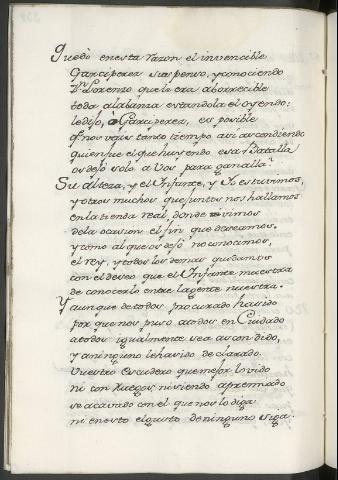 Quedò enesta razon el invencible
Garciperez suspenso, y conociendo
Dn Lorenzo que le era aborrecible
toda alabanza estandola el oyendo:
le dijo, ò Garciperez, es posible
q̃ nos vais tanto tiempo asi ascondiendo
quien fue el que huyendo esa Batalla
os dejò solo à Vos para ganalla?
Su alteza, y el Infante, y Yo estuvimos,
y otros muchos que juntos nos hallamos
en la tienda real, donde vimos
de la ocasion el fin que deseamos.
y como al que os dejò no conocimos,
el rey, y todos los demas quedamos
con el deseo que el Infante muestra
de conocerlo entre la gente nuestra.
Y aunque de todos procurado ha sido
por que nos puso a todos en Cuidado
a todos igualmente sea ascondido,
y a ninguno le ha sido declarado.
Vuestro Escudero que mejor lo vido
ni con ruegos, ni siendo apremiado
se a cavado con el que nos lo diga
ni en esto el gusto de ninguno siga.